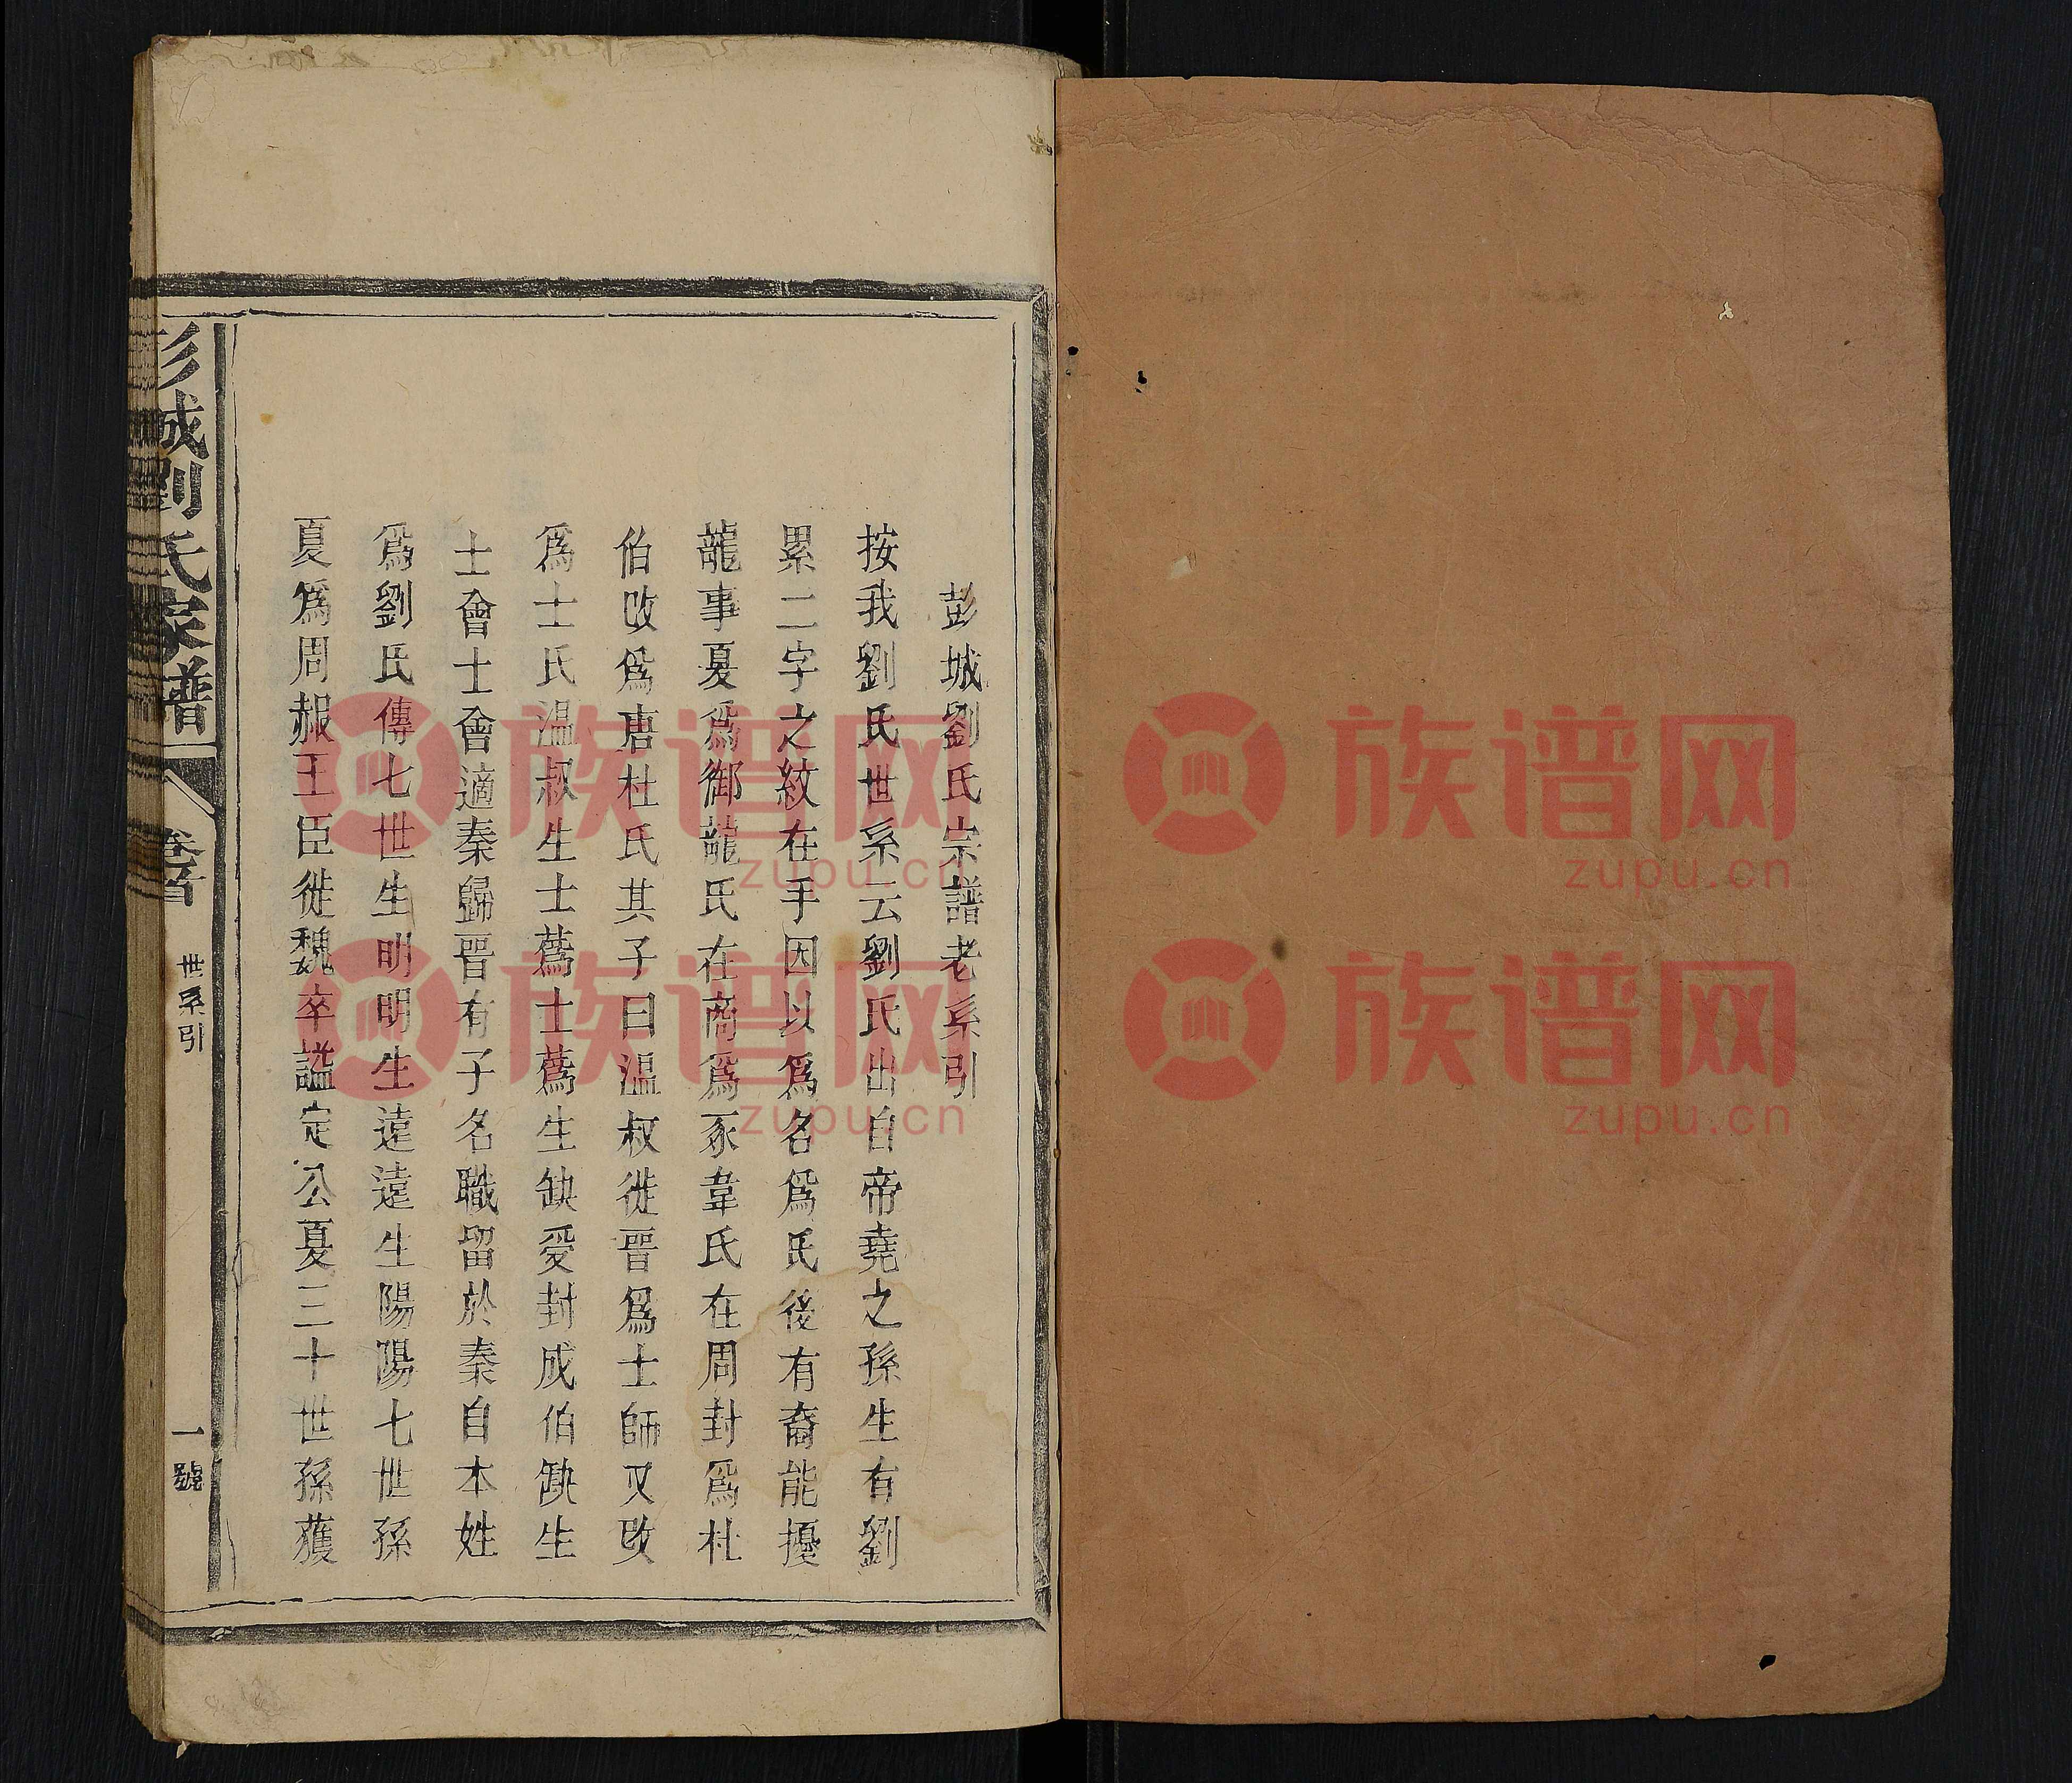 彭城劉氏宗譜老系引
按我劉氏世系云劉氏出自帝堯之孫生有劉
累二字之紋在手因以爲名爲氏後有裔能擾
龍事夏爲御龍氏在商爲豕韋氏在周封爲杜
伯改爲唐杜氏其子曰温叔徙晉爲士師又改
爲士氏温叔生士蔿士蔿生缺受封成伯缺生
士會士會適秦歸晋有子名職留於秦自本姓
爲劉氏傳七世生明明生遠遠生陽陽七世孫
夏爲周赧王臣徙魏卒謚定公夏三十世孫獲
彭城劉氏家譜
卷首
世系引
一號
族谱网
zupu.cn
族谱网
zupu.cn
族谱网
zupu.cn
族谱网
zupu.cn